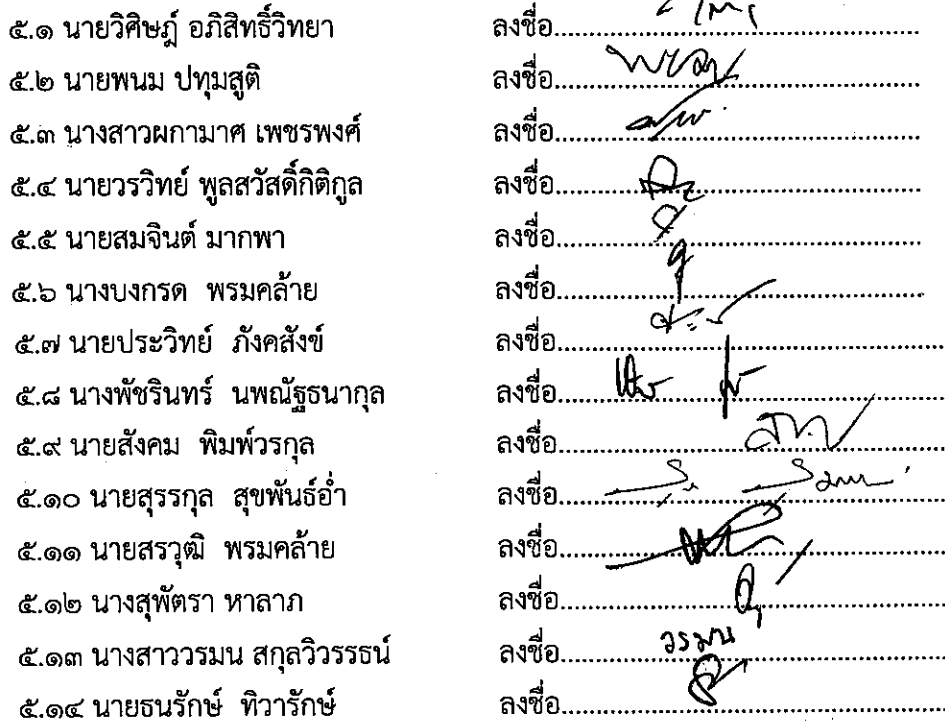 ๕.๑ นายวิศิษฎ์ อภิสิทธิ์วิทยา ลงชื่อ
๕.๒ นายพนม ปทุมสูติ ลงชื่อ
๕.๓ นางสาวผกามาศ เพชรพงศ์ ลงชื่อ
๕.๔ นายวรวิทย์ พูลสวัสดิ์กิติกูล ลงชื่อ
๕.๕ นายสมจินต์ มากพา ลงชื่อ
๕.๖ นางบงกรด พรมคล้าย ลงชื่อ
๕.๗ นายประวิทย์ ภังคสังข์ ลงชื่อ
๕.๘ นางพัชรินทร์ นพณัฐธนากุล ลงชื่อ
๕.๙ นายสังคม พิมพ์วรกุล ลงชื่อ
๕.๑๐ นายสุรรกุล สุขพันธ์อ่ำ ลงชื่อ
๕.๑๑ นายสรวุฒิ พรมคล้าย ลงชื่อ
๕.๑๒ นางสุพัตรา หาลาภ ลงชื่อ
๕.๑๓ นางสาววรมน สกุลวิวรรธน์ ลงชื่อ วรมน
๕.๑๔ นายธนรักษ์ ทิวารักษ์ ลงชื่อ